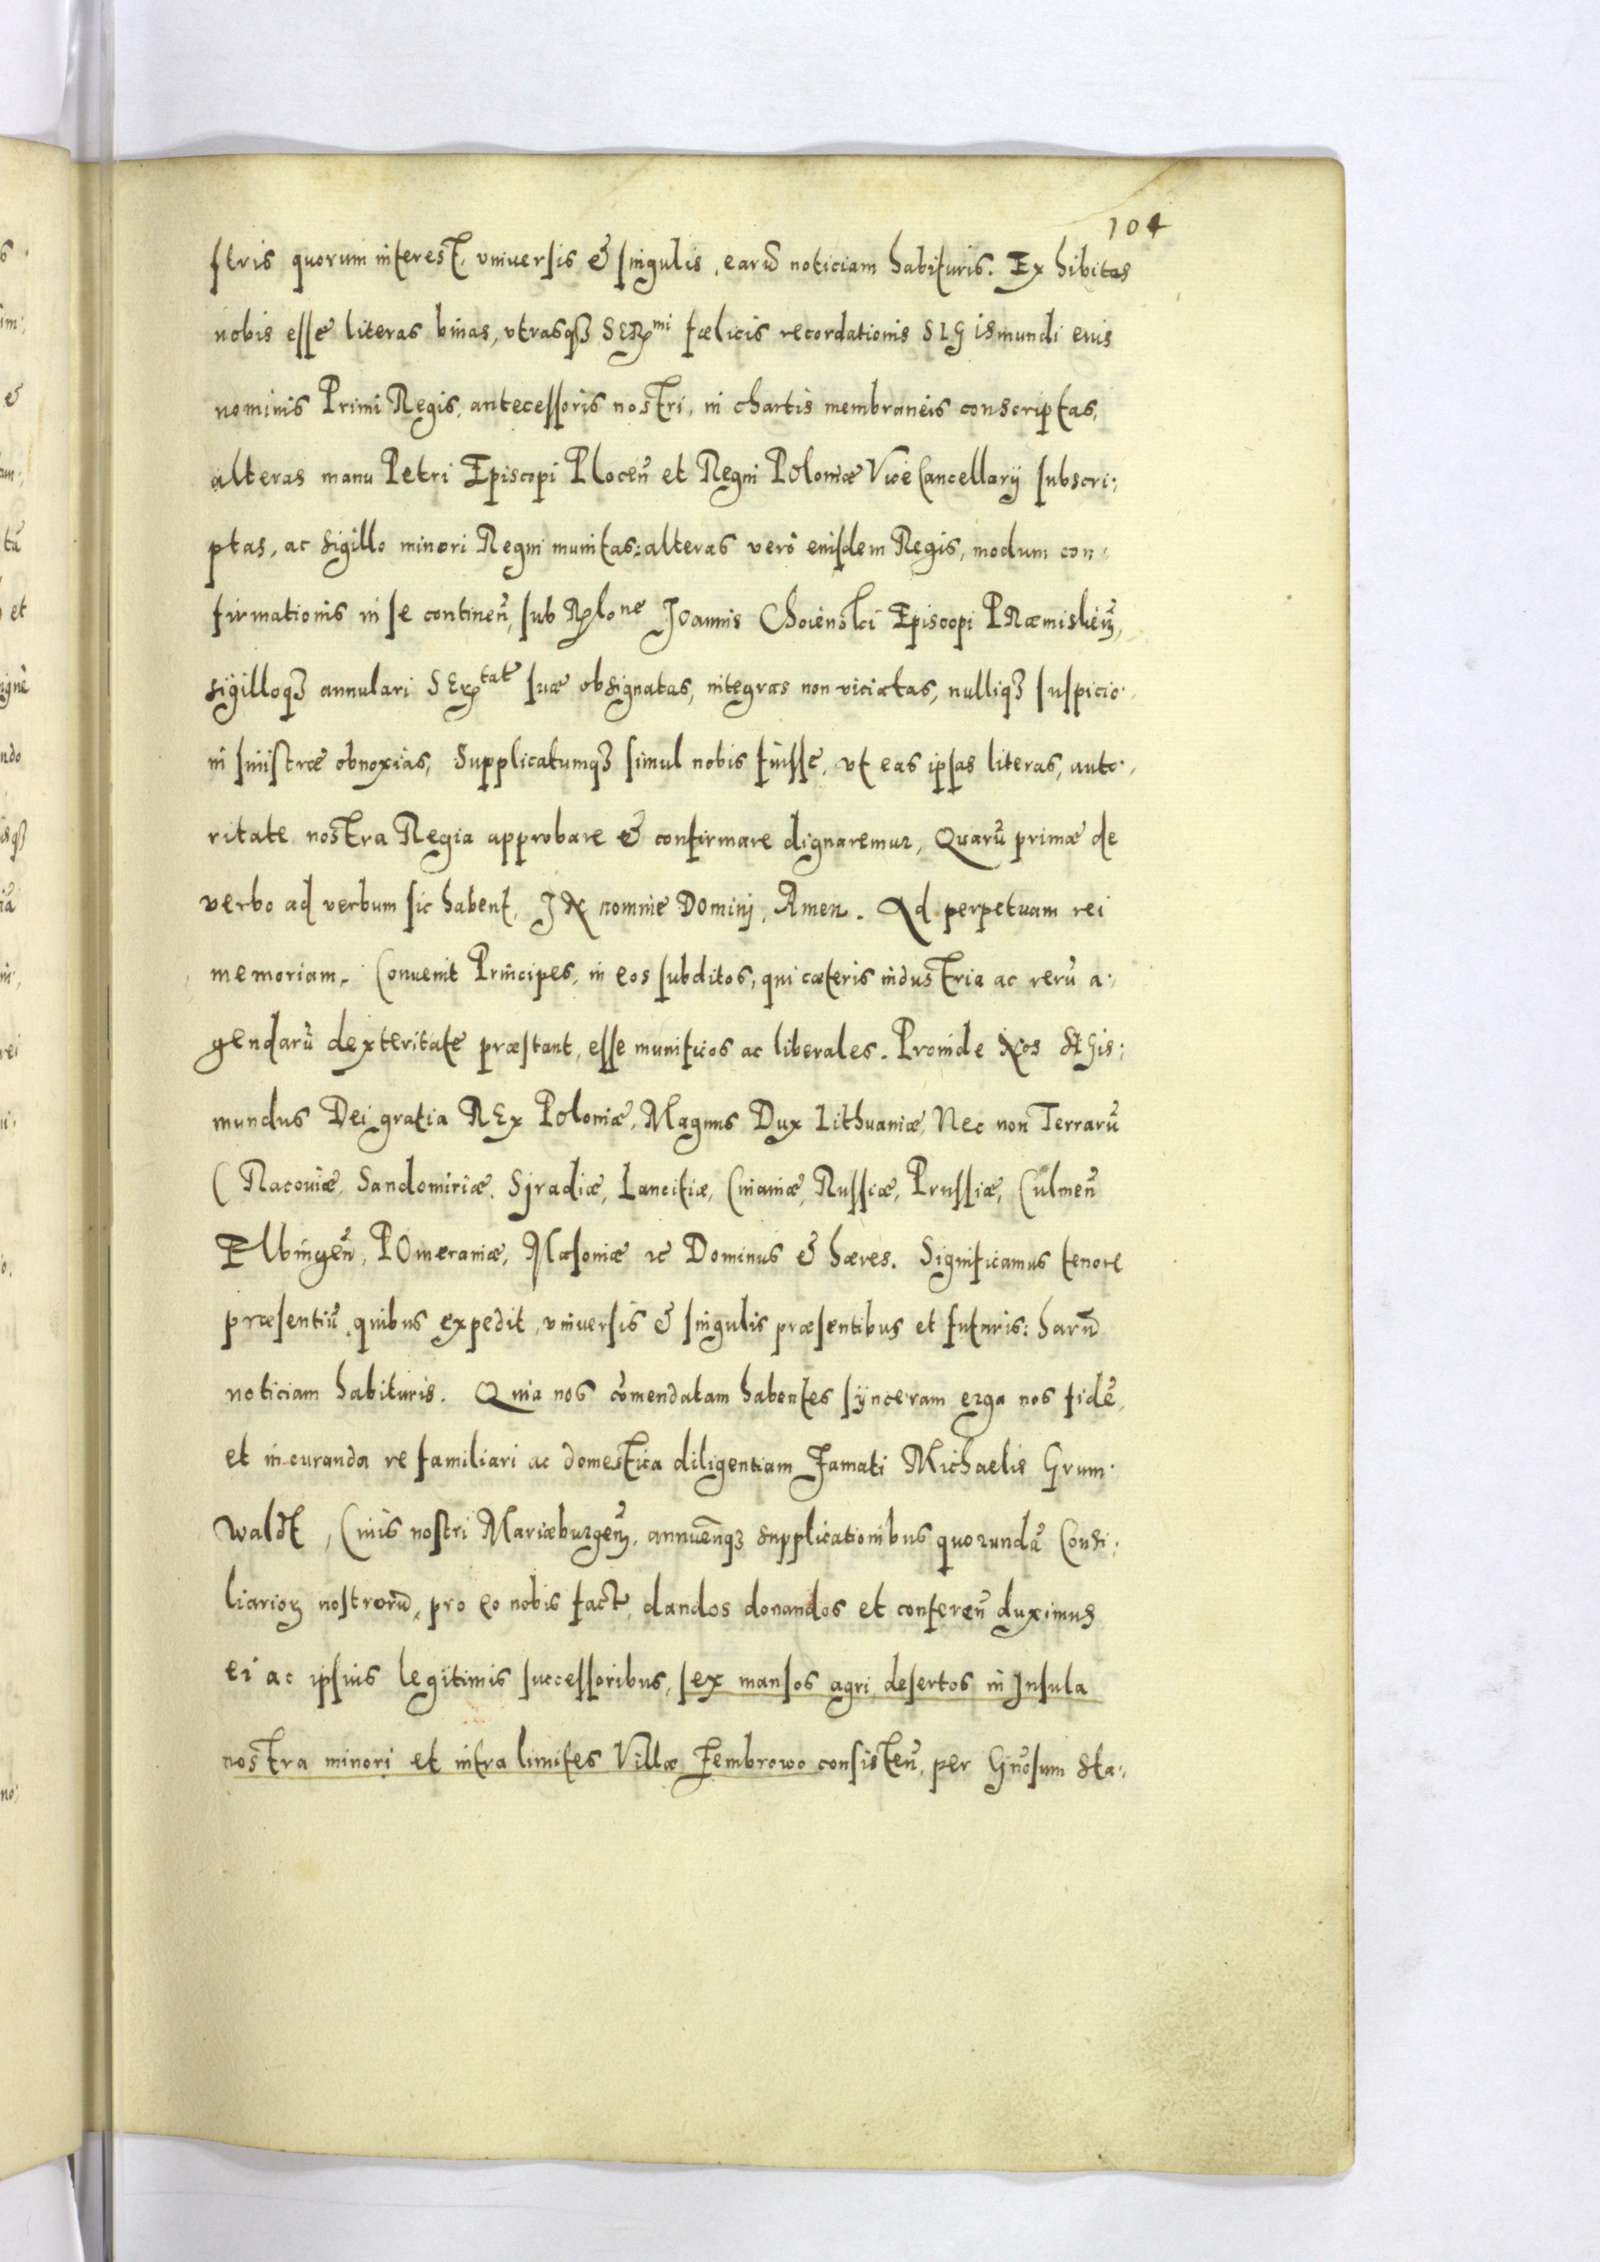 104
stris quorum interest, vniuersis & singulis, earũ noticiam habituris. Exhibitas
nobis esse literas binas, vtrasqȝ SERmi fœlicis recordationis SIGismundi eius
nominis Primi Regis, antecessoris nostri, in chartis membraneis conscriptas,
alteras manu Petri Episcopi Plocen̄ et Regni POloniæ ViceCancellarij subscri:
ptas, ac sigillo minori Regni munitas: alteras verò eiusdem Regis, modum con:
firmationis in se continen̄, sub Rlone JOannis Choienski Episcopi PRæmislien̄,
sigilloqȝ annulari SERtatẽ suæ obsignatas, integras non viciatas, nulliqȝ suspicio:
ni sinistræ obnoxias, Supplicatumqȝ simul nobis fuisse, vt eas ipsas literas, auto:
ritate nostra Regia approbare & confirmare dignaremur, Quarũ primæ de
verbo ad verbum sic habent, IN nomine DOminj, Amen. Ad perpetuam rei
memoriam. Conuenit Principes, in eos subditos, qui cæteris industria ac rerũ a:
gendarũ dexteritate præstant, esse munificos ac liberales. Proinde Nos SIGis:
mundus Dei gratia REx POloniæ, Magnus Dux Lithuaniæ, Nec non Terrarũ
CRacouiæ, Sandomiriæ, Syradiæ, Lancitiæ, Cuiauiæ, Russiæ, Prussiæ, Culmen̄
Elbingen̄, POmeraniæ, Masouiæ ꝛc Dominus & hæres. Significamus tenore
præsentiũ, quibus expedit, vniuersis & singulis præsentibus et futuris: harũ
noticiam habituris. Quia nos cõmendatam habentes sÿnceram erga nos fidẽ,
et in curanda re familiari ac domestica diligentiam Famati Michaelis Grum:
waldt, Ciuis nostri Mariæburgen̄, annuen̄qȝ supplicationibus quorundã Consi:
liarioꝝ nostrorũ, pro eo nobis fact̃, dandos donandos et conferen̄ duximus
ei ac ipsius legitimis successoribus, sex mansos agri desertos in Insula
nostra minori et intra limites Villæ Fembrowo consisten̄, per Gn̄osum Sta: